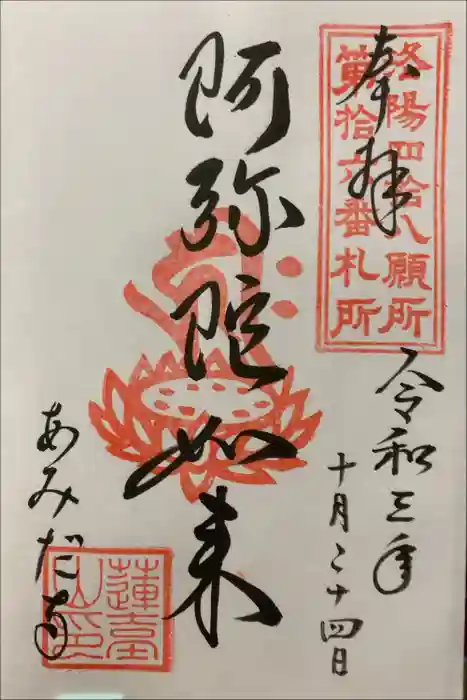 奉拝
洛陽四拾八願所
第拾六番札所
令和三年
十月二十四日
阿弥陀如来
あみだ寺
蓮臺
山印